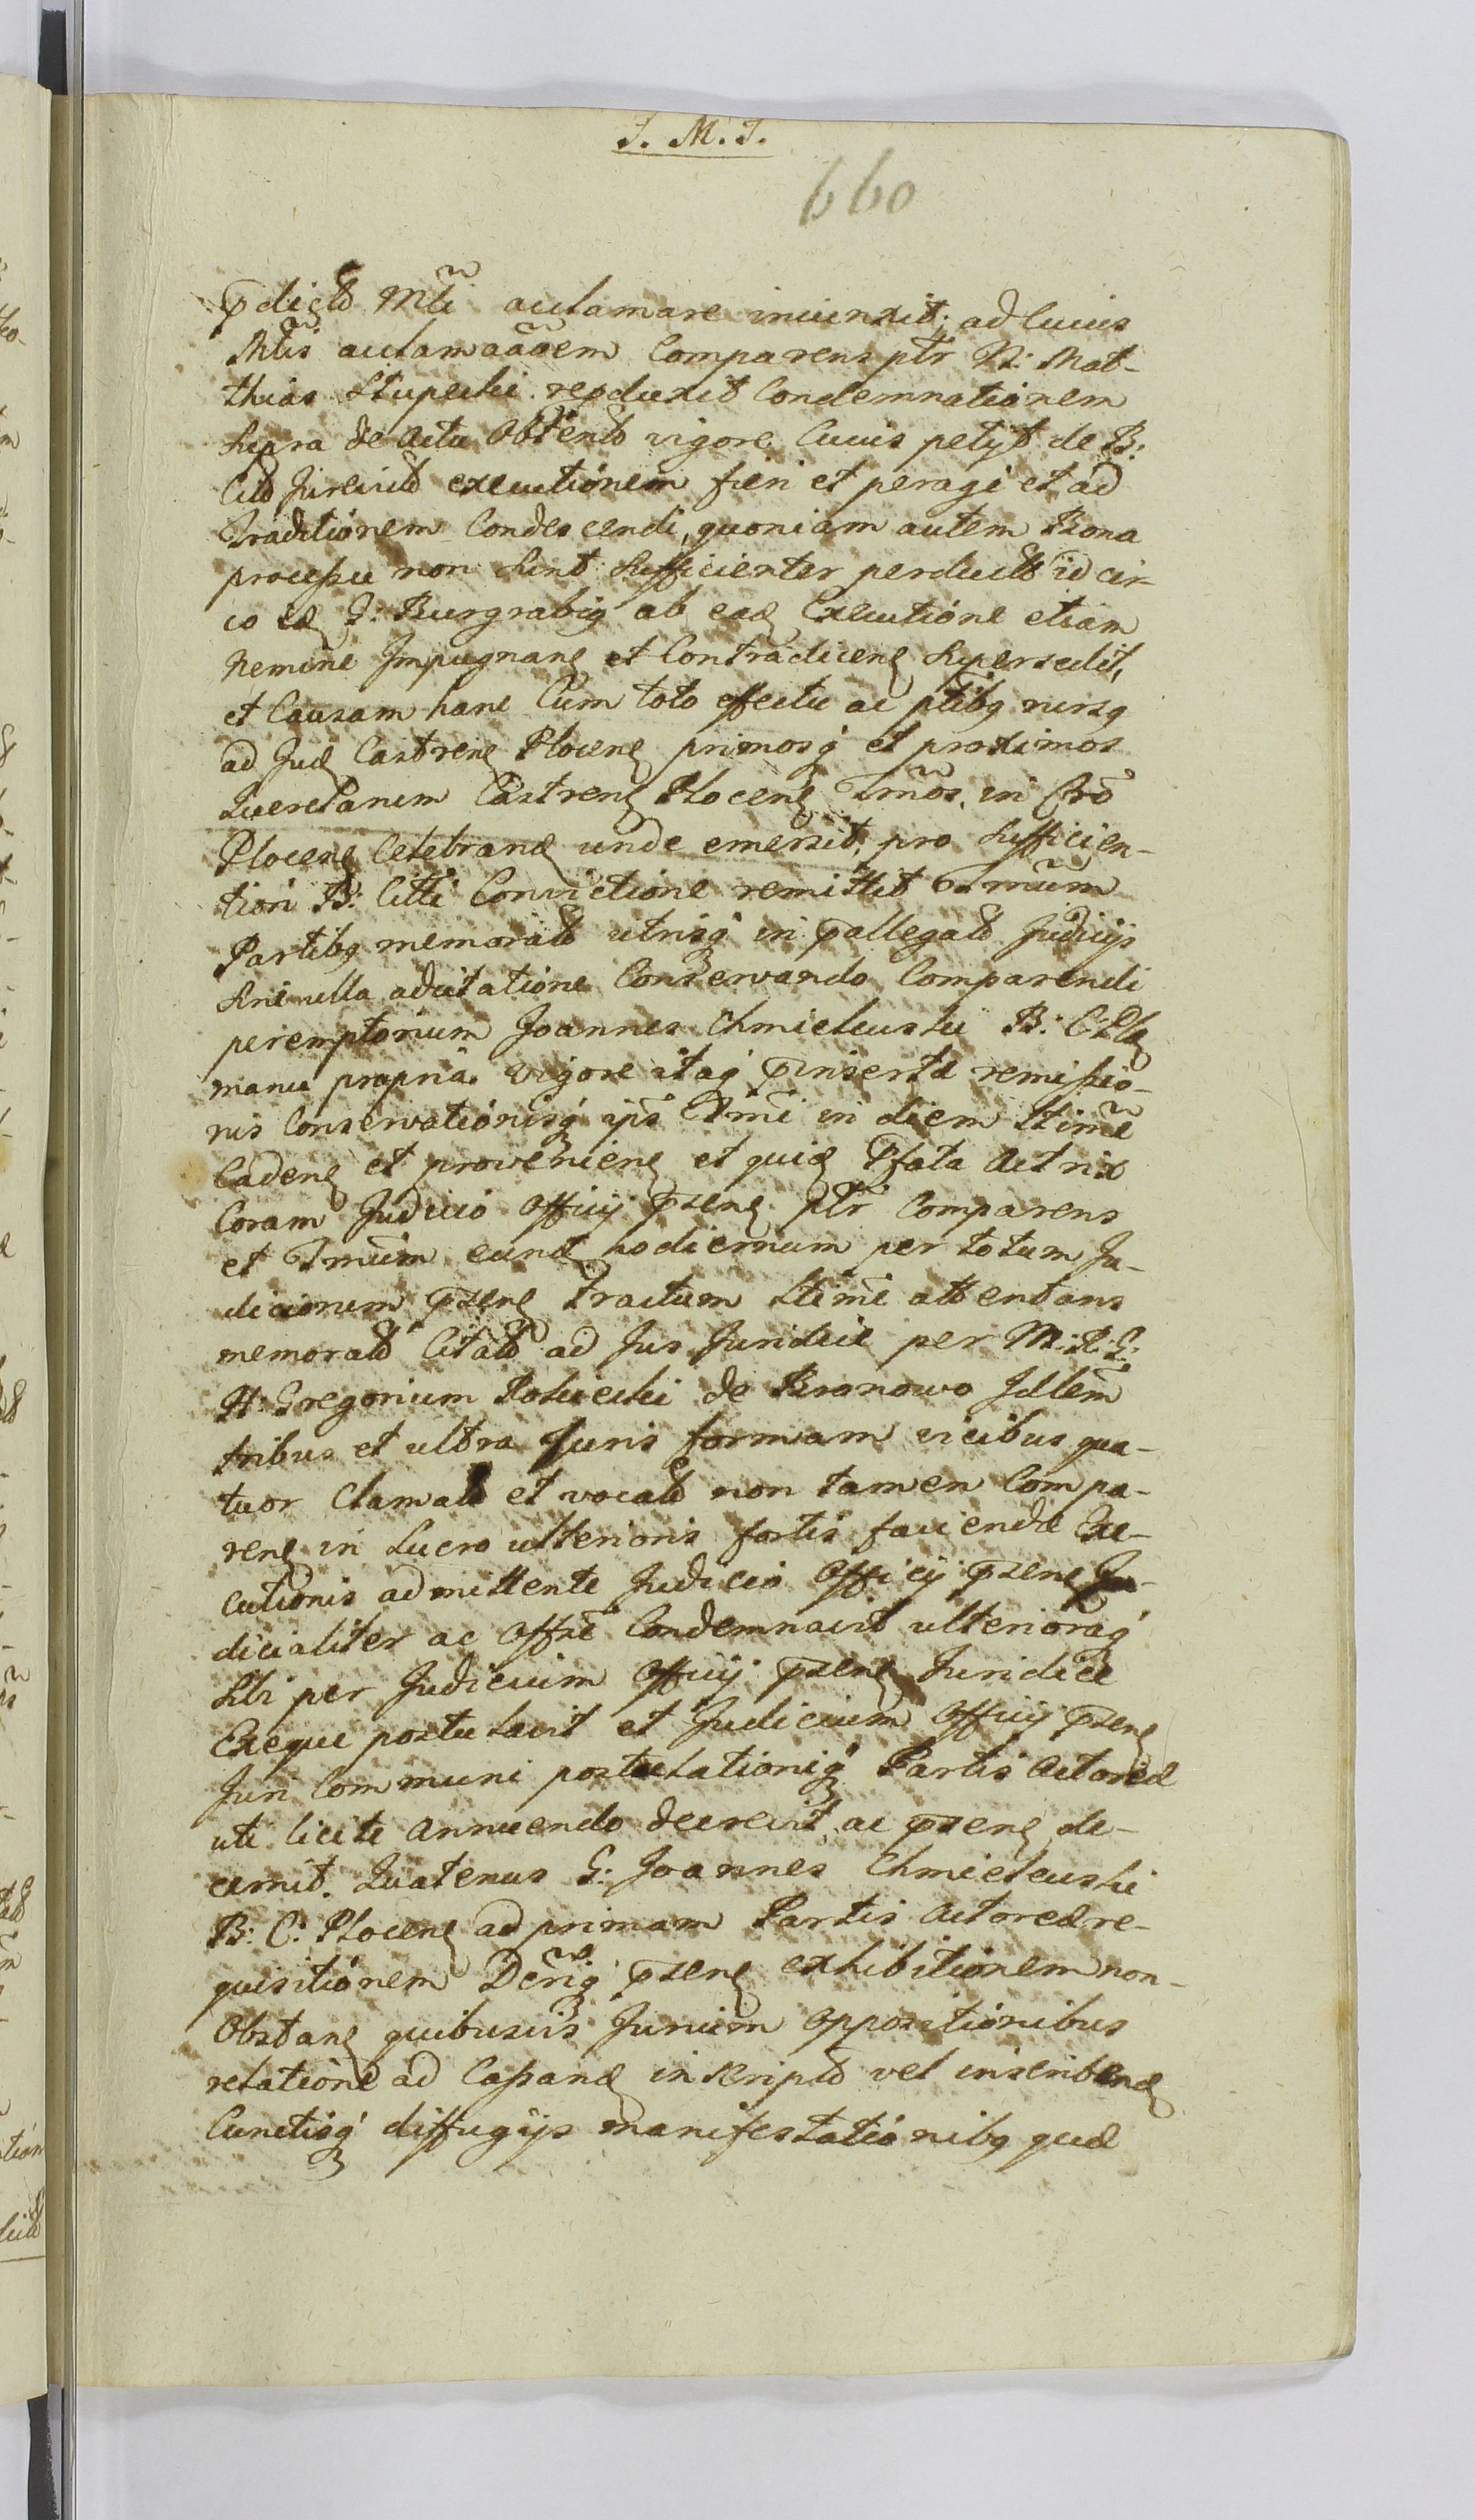 J. M. J.
660
p̄dictō Mlī acclamare iniunxit; ad Cuius
Mtīs acclamaāōem Comparens ptr N: Mat-
thias Słupecki reproduxit Condemnationem
Supra de Actu Obtentō vigore Cuius petijt de B:
Citō Jurevictō executionem fieri et peragi et ad
Traditionem Condescendi, quoniam autem Bona
processu non sint Sufficienter perducta id cir-
co Idę G: Burgrabig ab eadę Executione etiam
Nemine Impugnanę et Contradicenę Supersedit,
et Causam hanc Cum toto effectu ac ptibg rursg
ad Judę Castrenę Plocenę primosq́ et proximos
Querelarum Castrenę Plocenę Tmños, in Crō
Plocenę Celebrandę unde emersit; pro Sufficien-
tiori B: Citti Convictione remittit Tmñum
Partibg memoratō utrisq́ in p̄allegatō Judicijs
Sine ulla adcitatione Conservando Comparendi
peremptorium Joannes Chmielewski B: C: Plę
manu propria. Vigore itaq́ p̄insertæ remissio-
nis Conservationisq́ ipŝ Tmñi in diem Stimē
Cadenę et provenienę et quidę P̄fata Actrix
Coram Judicio Officij p̄senę ptr Comparens
et Tmñum eundę hodiernum per totum Ju-
diciorum p̄senę Tractum Stimē attentans
memoratō Citatō ad Jus Juridice per M: R: G:
H: Gregorium Rościecki de Bronowo Jdlem̄
tribus et ultra Juris formam vicibus qua-
tuor Clamatō et vocatō non tamen Compa-
renę in Lucro ulterioris fortis faciendæ Exe-
cutionis admittente Judicio Officij p̄senę Ju-
dicialiter ac Offsē Condemnavit ulterioraq́
Sibi per Judicium Officij p̄senę Juridice
Exequi postulavit et Judicium Officij p̄senę
Juri Communi postulationiq́ Partis Actoreæ
uti licite Annuendo decrevit ac p̄senę de-
cernit. Quatenus G: Joannes Chmielewski
B: C: Plocenę ad primam Partis Actoreæ re-
quisitionem Decr̄ig p̄senę exhibitionem non-
Obstanę quibusvis Jurium Oppositionibus
relatione ad Cassandę inscriptō vel inscribendę
Cunctisq́ diffugijs manifestationibg quæ